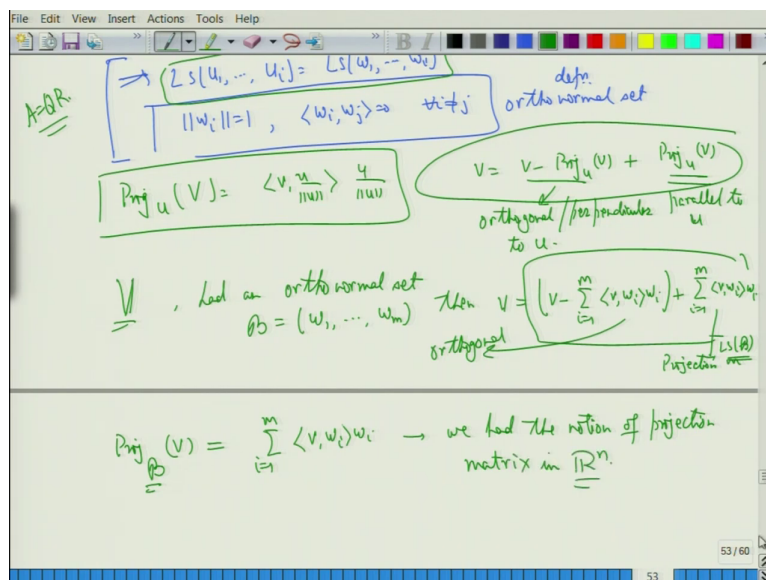 File Edit View Insert Actions Tools Help
A=QR.
⇒ LS(u₁, ..., uᵢ) = LS(w₁, ..., wᵢ)
||wᵢ||=1 , ⟨wᵢ, wⱼ⟩=0 ∀i≠j
defn.
orthonormal set
Projᵤ(V) = ⟨v, u/||u||⟩ u/||u||
V = V − Projᵤ(V) + Projᵤ(V)
orthogonal / perpendicular to u.
parallel to u
V , had an orthonormal set
B = (w₁, ..., wₘ)
then V = (v − ∑_{i=1}^{m} ⟨v, wᵢ⟩wᵢ) + ∑_{i=1}^{m} ⟨v, wᵢ⟩wᵢ
orthogonal
Projection LS(B)
Proj_B (V) = ∑_{i=1}^{m} ⟨v, wᵢ⟩wᵢ → we had the notion of projection
matrix in ℝⁿ.
53 / 60
53